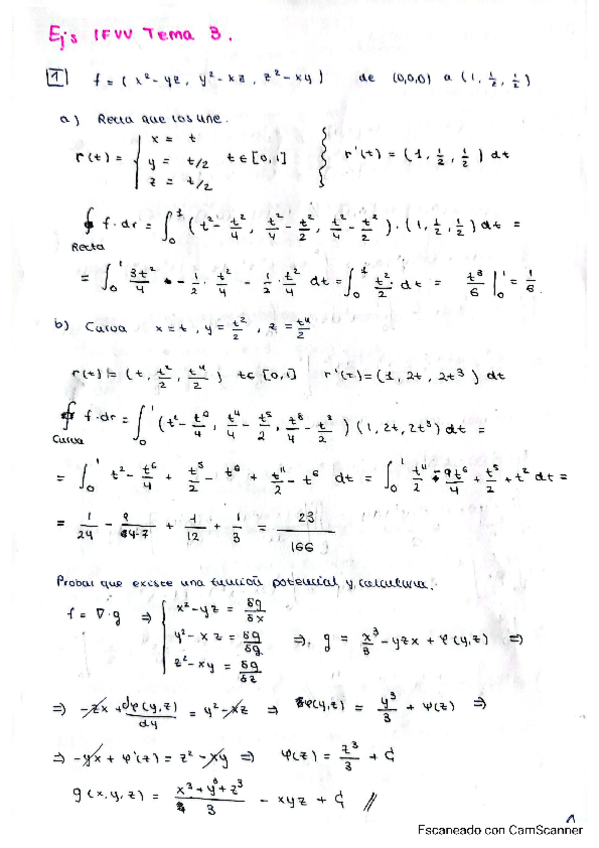 Ej's IFVV Tema 3.
1 f = (x²-yz, y²-xz, z²-xy) de (0,0,0) a (1, 1/2, 1/2)
a) Recta que los une.
r(t) = { x = t, y = t/2, z = t/2 t∈[0,1] r'(t) = (1, 1/2, 1/2) dt
∮ Recta f·dr = ∫₀¹ (t² - t²/4, t²/4 - t²/2, t²/4 - t²/2)·(1, 1/2, 1/2) dt =
= ∫₀¹ 3t²/4 - 1/2 · t²/4 - 1/2 · t²/4 dt = ∫₀¹ t²/2 dt = t³/6 |₀¹ = 1/6.
b) Curva x = t, y = t²/2, z = t⁴/2
r(t) = (t, t²/2, t⁴/2) t∈[0,1] r'(t) = (1, 2t, 2t³) dt
∮ Curva f·dr = ∫₀¹ (t² - t⁶/4, t⁴/4 - t⁵/2, t⁸/4 - t³/2)(1, 2t, 2t³) dt =
= ∫₀¹ t² - t⁶/4 + t⁵/2 - t⁶ + t¹¹/2 - t⁶ dt = ∫₀¹ t¹¹/2 - 9t⁶/4 + t⁵/2 + t² dt =
= 1/24 - 9/(4·7) + 1/12 + 1/3 = 23/166
Probar que existe una función potencial y calcularla.
f = ∇·g ⇒ { x²-yz = δg/δx
y²-xz = δg/δy ⇒ g = x³/3 - yzx + φ(y,z) ⇒
z²-xy = δg/δz
⇒ -zx + dφ(y,z)/dy = y²-xz ⇒ φ(y,z) = y³/3 + ψ(z) ⇒
⇒ -yx + φ'(z) = z²-xy ⇒ φ(z) = z³/3 + C
g(x,y,z) = (x³+y³+z³)/3 - xyz + C //
1
Escaneado con CamScanner